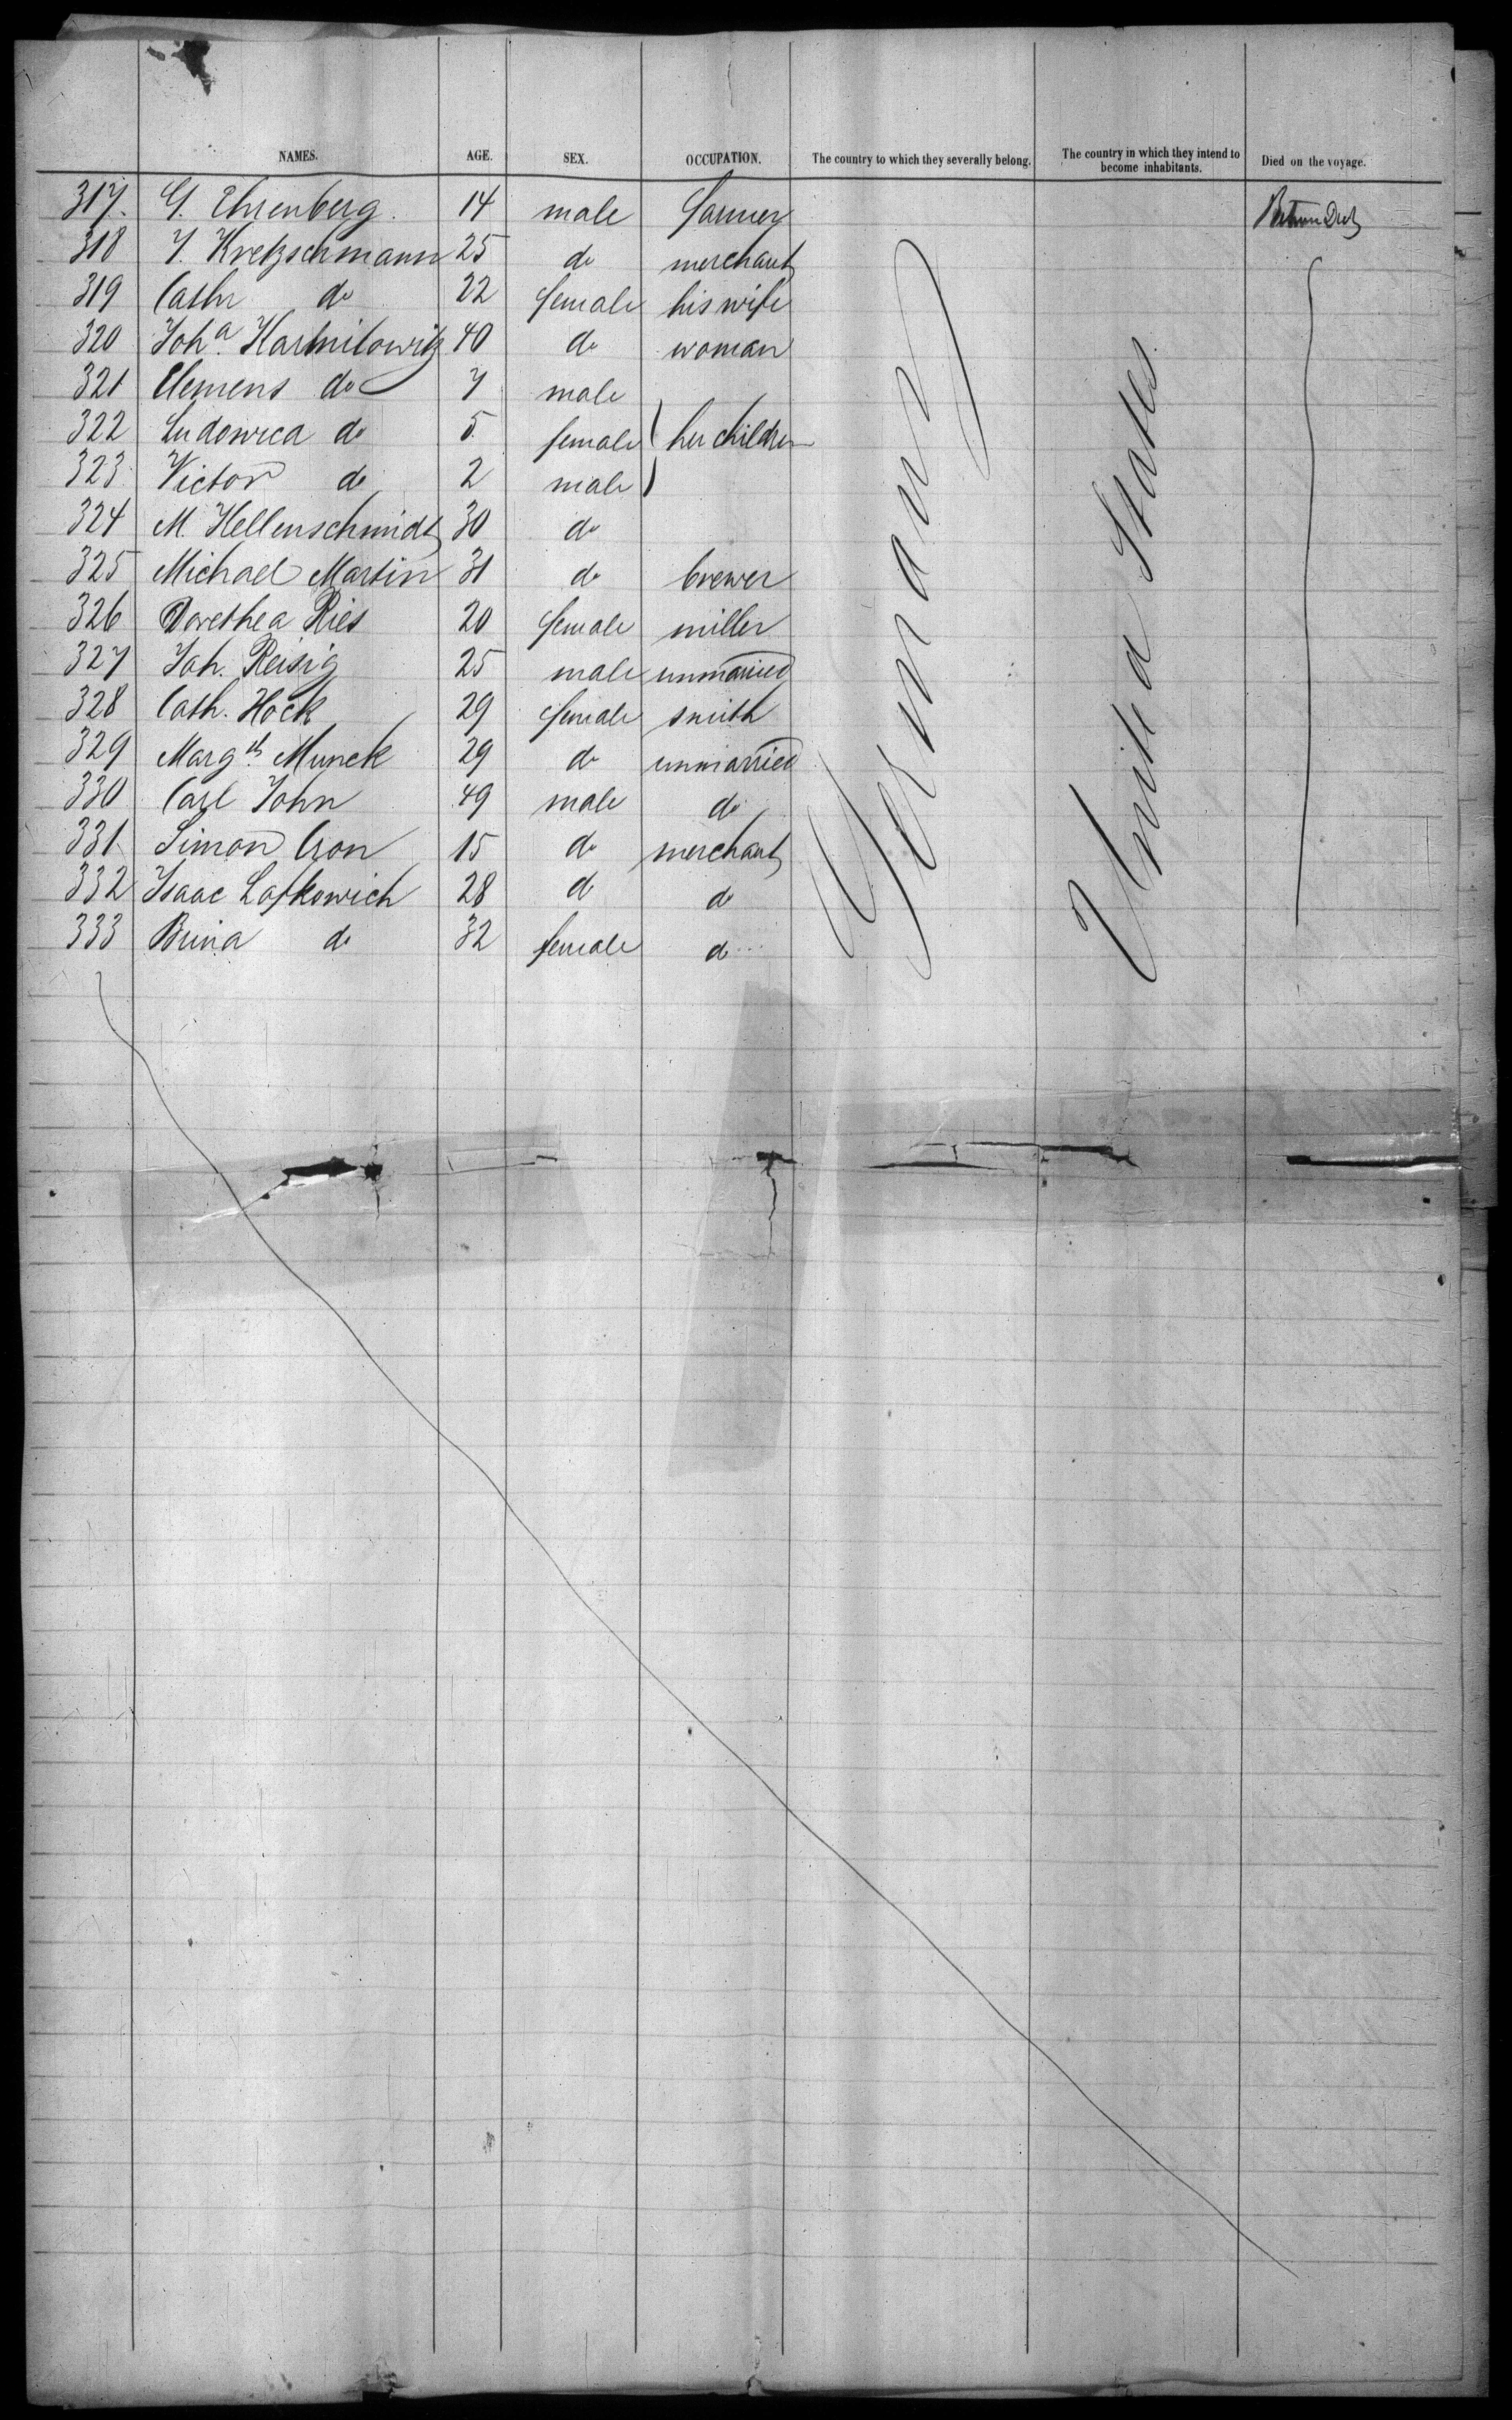 NAMES. AGE. SEX. OCCUPATION. The country to which they severally belong. The country in which they intend to become inhabitants. Died on the voyage.
317. G. Ehrenberg. 14 male farmer
318 J. Kretzschmann 25 do merchant
319 Cathr do 22 female his wife
320 Joha. 40 do woman
321 Clemens do 7 male
322 Ludowica do 5 female her children
323 Victor do 2 male
324 M. Hellenschmidt 30 do
325 Michael Martin 31 do brewer
326 Dorethea Ries 20 female miller
327 Joh. Reisig 25 male unmarried
328 Cath. Hock 29 female smith
329 Margth Munck 29 do unmarried
330 Carl John 49 male do
331 Simon Cron 15 do merchant
332 Isaac Lafkowich 28 do do
333 Brina do 32 female do
Germany
United States